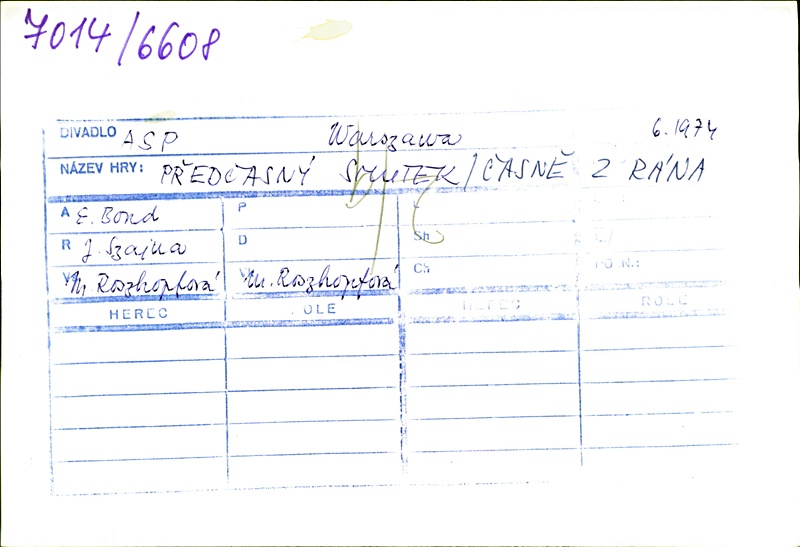 7014/6608
DIVADLO ASP Warszawa 6.1974
NÁZEV HRY: PŘEDČASNÝ SMUTEK/ČASNĚ Z RÁNA
A E. Bond P
R J. Szajna D Sh
V M. Roszkopfová M. Roszkopfová Ch PO N.:
HEREC OLE HEREC ROLE